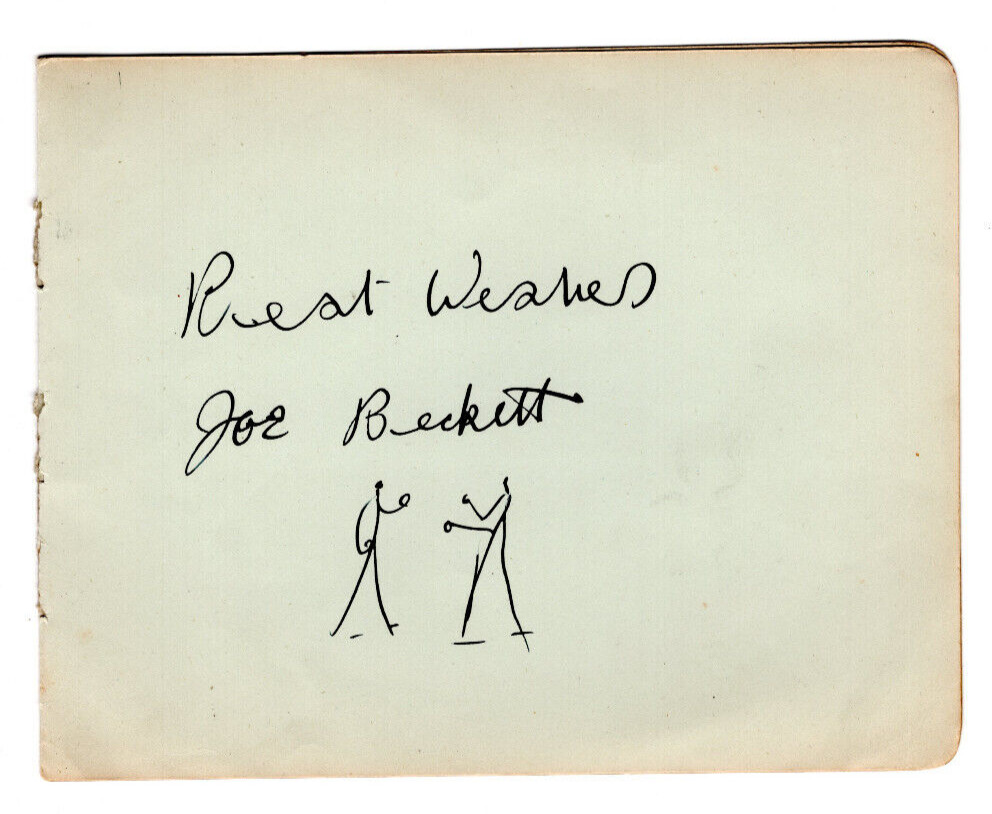 Best Wishes
Joe Beckett